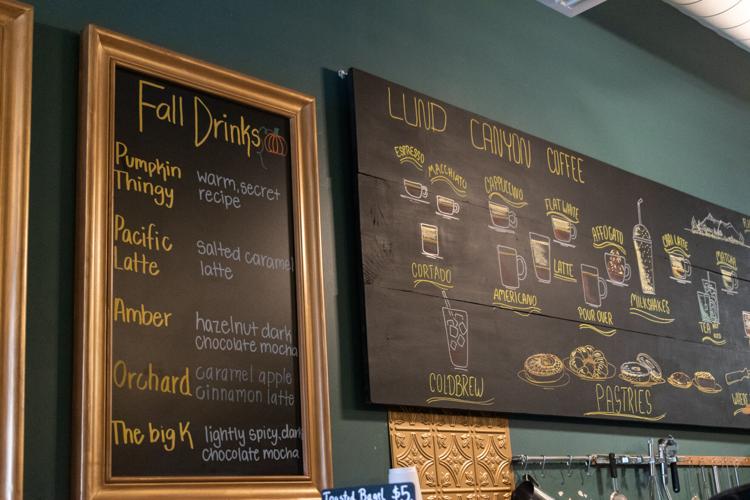 Fall Drinks
Pumpkin
Thingy
warm, secret
recipe
Pacific
Latte
salted caramel
latte
Amber
hazelnut dark
chocolate mocha
Orchard
caramel apple
cinnamon latte
The big K
lightly spicy, dark
chocolate mocha
LUND CANYON COFFEE
ESPRESSO
MACCHIATO
CAPPUCCINO
FLAT WHITE
AFFOGATO
CHAI LATTE
MATCHA
CORTADO
AMERICANO
LATTE
POUR OVER
MILKSHAKES
TEA
COLDBREW
PASTRIES
Toasted Bagel $5